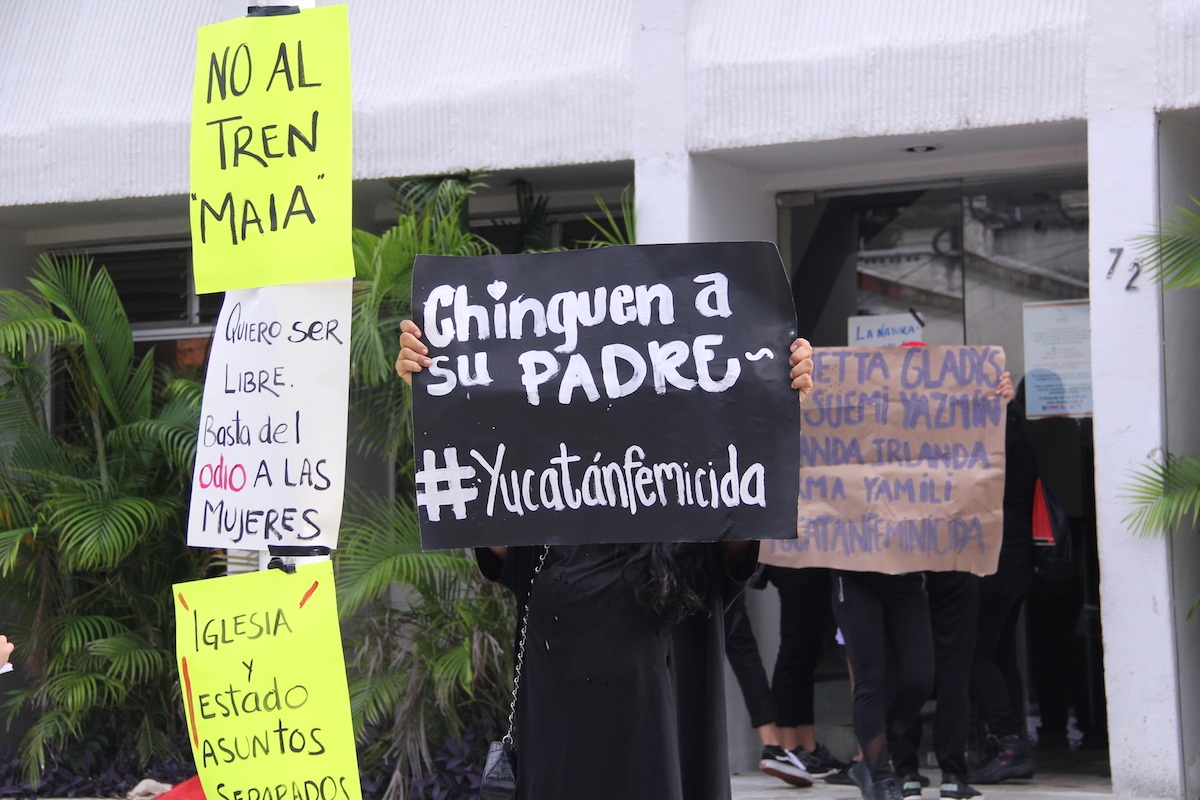 NO AL
TREN
"MAIA"
QUIERO SER
LIBRE.
Basta del
odio A LAS
MUJERES
IGLESIA
Y
Estado
ASUNTOS
SEPARADOS
Chinguen a
su PADRE~
#Yucatánfemicida
LA NATURA
ETTA GLADYS
SUEMI YAZMÍN
ANDA IRLANDA
MA YAMILI
YUCATANFEMINICIDA
72